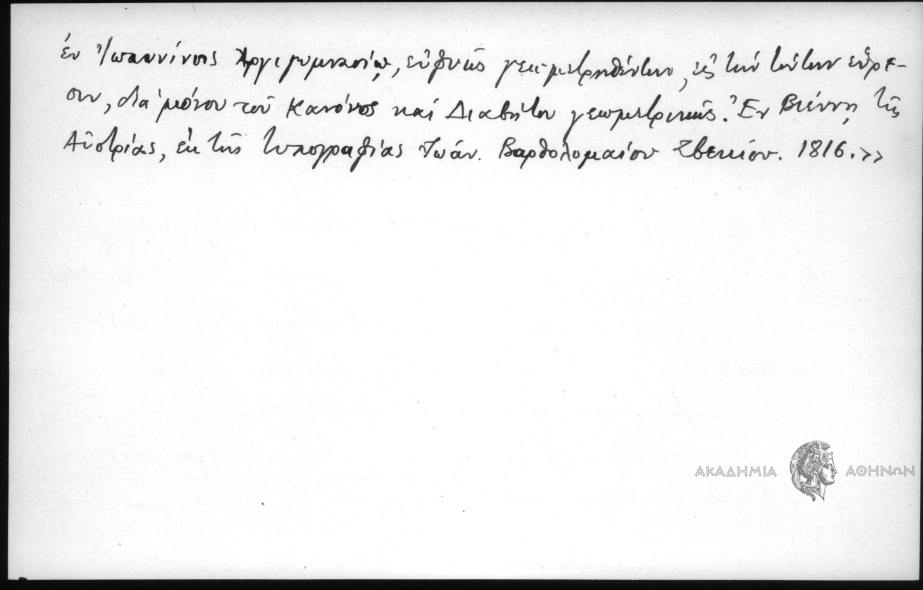 ἐν Ἰωαννίνοις Ἀρχιγυμνασίῳ, εὐφυῶς γεωμετρηθέντων, εἰς τὴν τούτων εὕρε-
σιν, διὰ μόνου τοῦ Κανόνος καὶ Διαβήτου γεωμετρικῶς. Ἐν Βιέννῃ τῆς
Αὐστρίας, ἐκ τῆς τυπογραφίας Ἰωάν. Βαρθολομαίου Σβεκίου. 1816.>>
ΑΚΑΔΗΜΙΑ ΑΘΗΝΩΝ